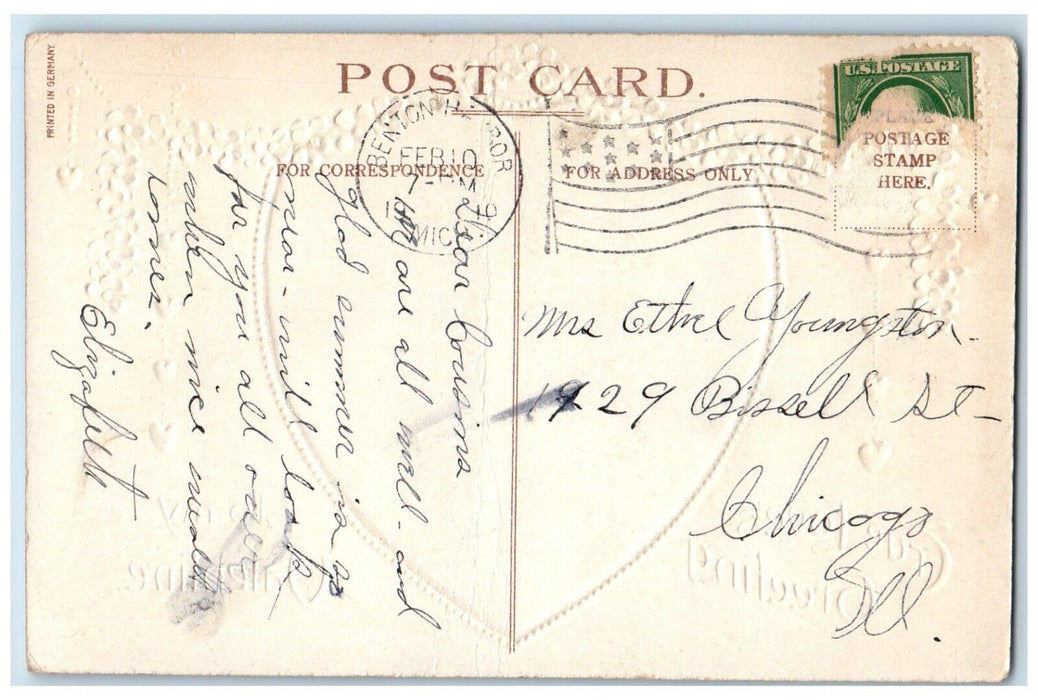 PRINTED IN GERMANY
POST CARD.
U.S. POSTAGE
PLACE
POSTAGE
STAMP
HERE.
BENTON HARBOR
FEB 10
7-PM
MICH
FOR CORRESPONDENCE
FOR ADDRESS ONLY
Dear Cousins
We are all well - and
glad summer is so
near - will look
for you all over
when nice weather
comes.
Elizabeth
Mrs Ethel Youngston.
1929 Bissell St -
Chicago
Ill.
To my
Valentine
Greeting